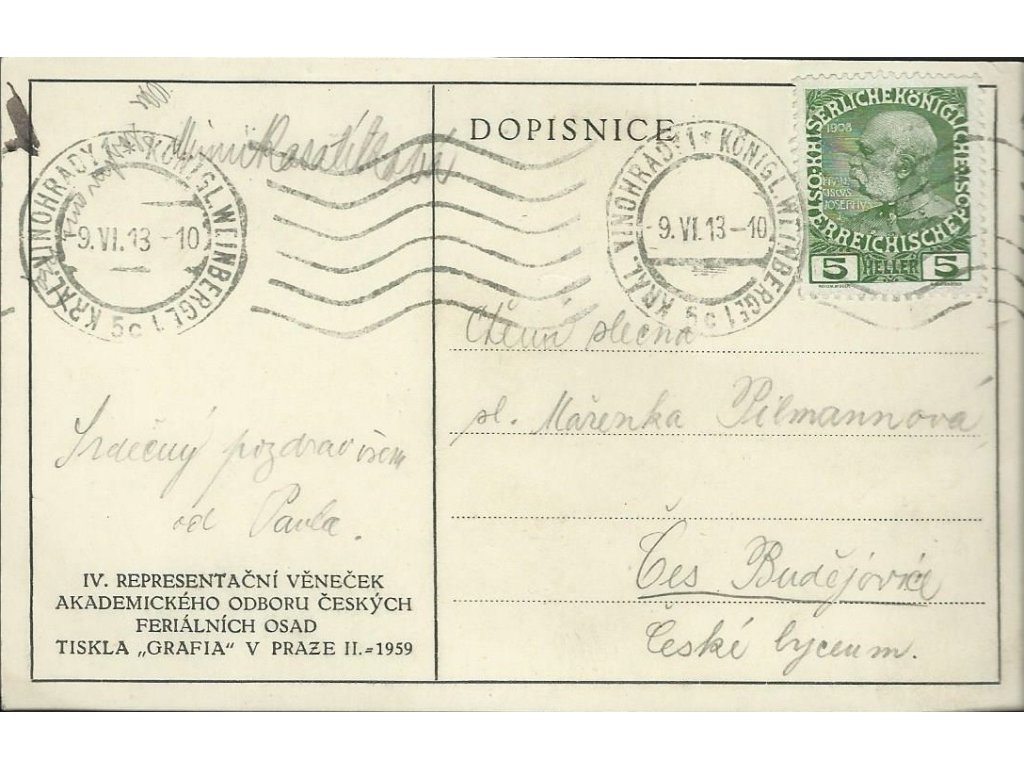 DOPISNICE
KRÁL. VINOHRADY 1 * KÖNIGL. WEINBERGE 1 5c
9.VI.13–10
KRÁL. VINOHRADY 1 * KÖNIGL. WEINBERGE 1 5c
9.VI.13–10
KAISERLICHE KÖNIGLICHE
ÖSTERREICHISCHE POST
1908
JOSEPHVS
5 HELLER 5
Srdečný pozdrav všem
od Pavla.
IV. REPRESENTAČNÍ VĚNEČEK
AKADEMICKÉHO ODBORU ČESKÝCH
FERIÁLNÍCH OSAD
TISKLA „GRAFIA“ V PRAZE II.=1959
slečna
sl. Mařenka Pilmannová
Čes Budějovice
České lyceum.